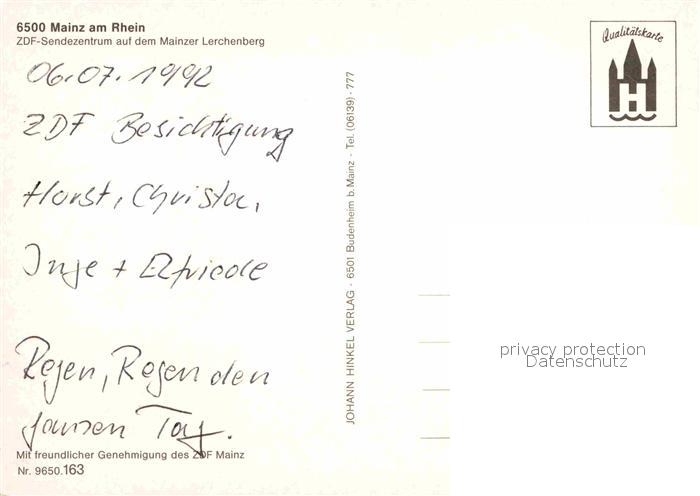 6500 Mainz am Rhein
ZDF-Sendezentrum auf dem Mainzer Lerchenberg
06.07.1992
ZDF Besichtigung
Horst, Christa,
Inge + Elfriede
Regen, Regen den
ganzen Tag.
Mit freundlicher Genehmigung des ZDF Mainz
Nr. 9650.163
JOHANN HINKEL VERLAG · 6501 Budenheim b. Mainz · Tel. (06139) - 777
Qualitätskarte
H
privacy protection
Datenschutz